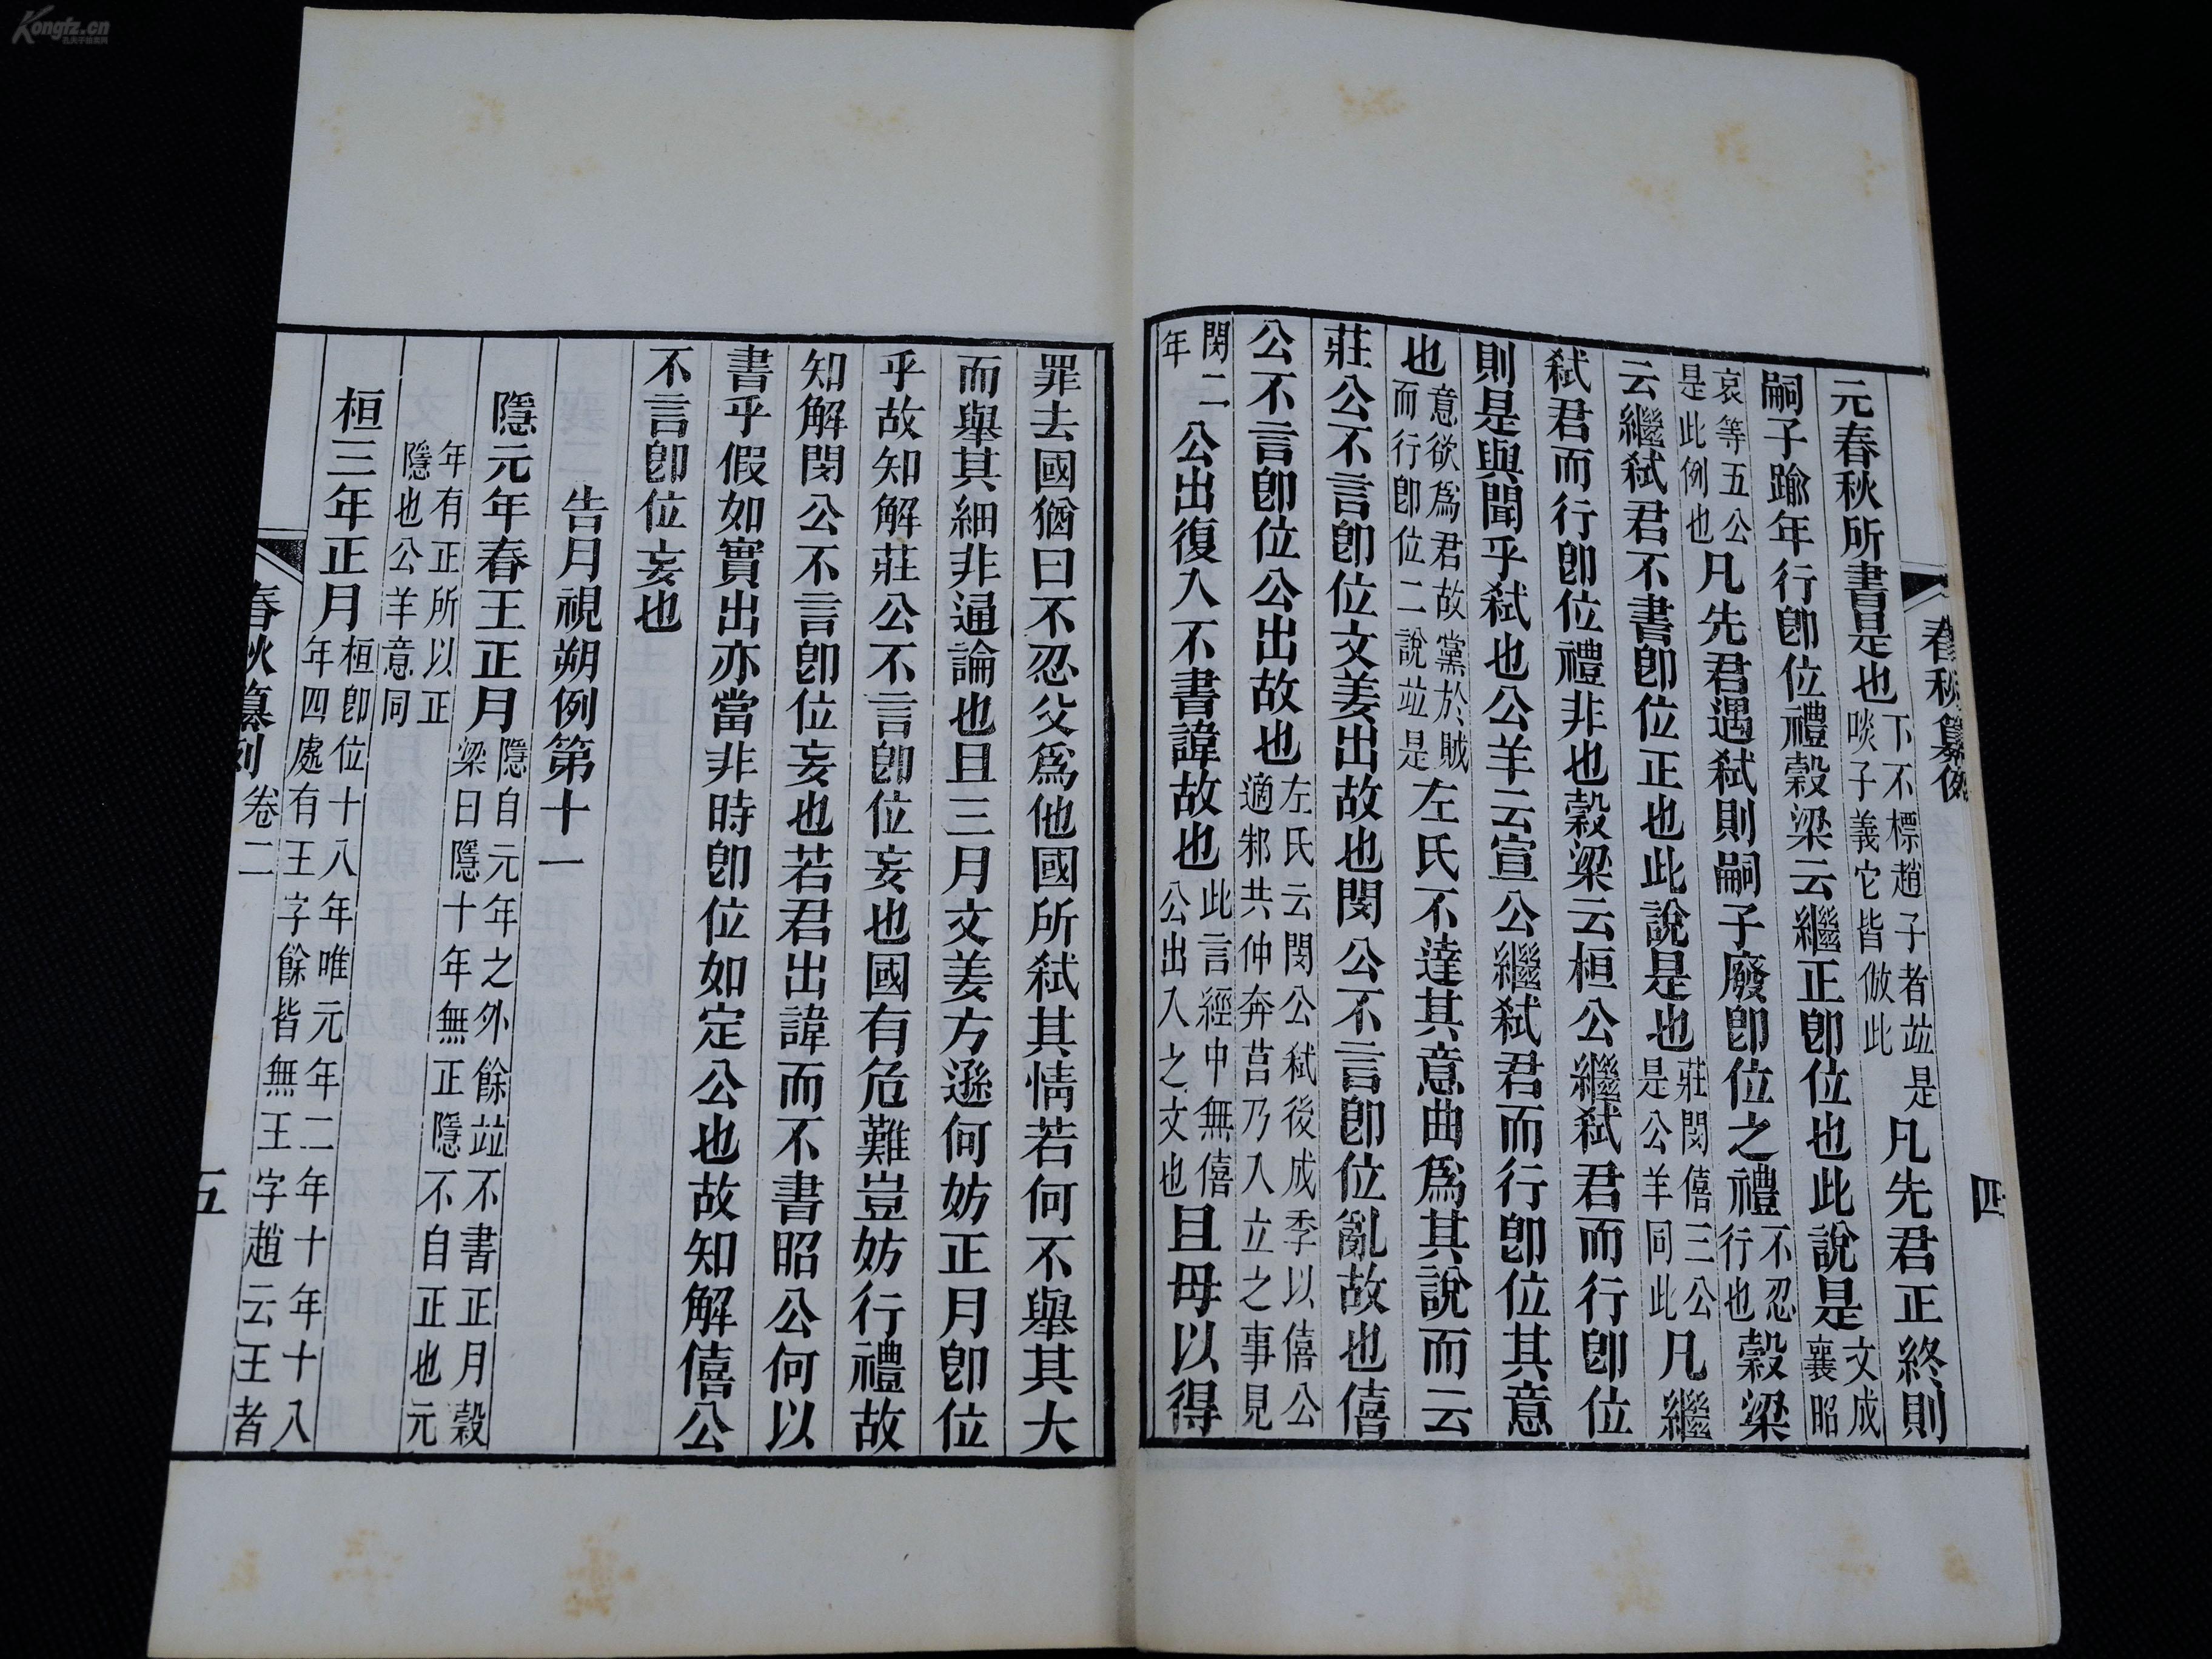 Kongfz.cn
春秋纂例
四
元春秋所書是也下不標趙子者竝是啖子義它皆倣此凡先君正終則
嗣子踰年行卽位禮穀梁云繼正卽位也此說是文成襄昭
哀等五公是此例也凡先君遇弒則嗣子廢卽位之禮不忍行也穀梁
云繼弒君不書卽位正也此說是也莊閔僖三公是公羊同此凡繼
弒君而行卽位禮非也穀梁云桓公繼弒君而行卽位
則是與聞乎弒也公羊云宣公繼弒君而行卽位其意
也意欲爲君故黨於賊而行卽位二說竝是左氏不達其意曲爲其說而云
莊公不言卽位文姜出故也閔公不言卽位亂故也僖
公不言卽位公出故也左氏云閔公弒後成季以僖公適邾共仲奔莒乃入立之事見
閔二年公出復入不書諱故也此言經中無僖公出入之文也且母以得
罪去國猶曰不忍父爲他國所弒其情若何不舉其大
而舉其細非通論也且三月文姜方遜何妨正月卽位
乎故知解莊公不言卽位妄也國有危難豈妨行禮故
知解閔公不言卽位妄也若君出諱而不書昭公何以
書乎假如實出亦當非時卽位如定公也故知解僖公
不言卽位妄也
告月視朔例第十一
隱元年春王正月隱自元年之外餘竝不書正月穀梁曰隱十年無正隱不自正也元
年有正所以正隱也公羊意同
桓三年正月桓卽位十八年唯元年二年十年十八年四處有王字餘皆無王字趙云王者
春秋纂例 卷二
五